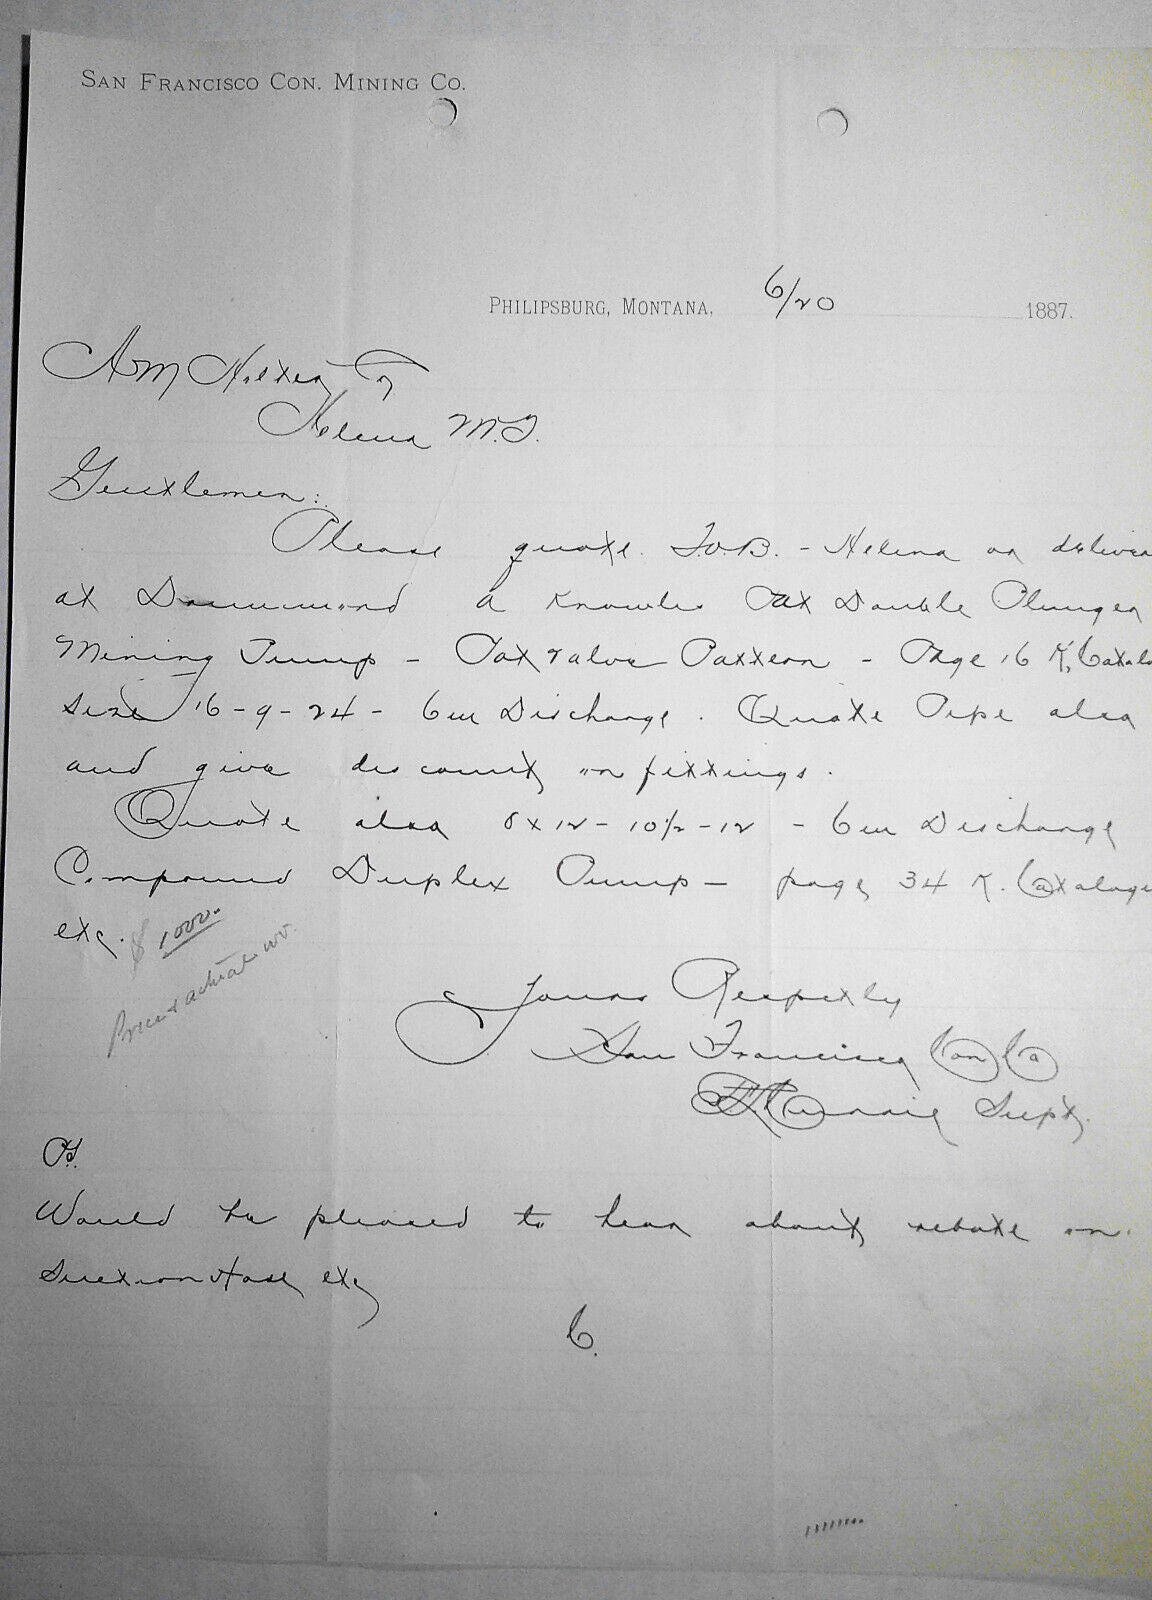 San Francisco Con. Mining Co.
Philipsburg, Montana, 6/20 1887.
A M Holter Co
Helena M.T.
Gentlemen:
Please quote F.O.B. - Helena or deliver
at Drummond a Knowles Pat Double Plunger
Mining Pump - Pot valve Pattern - Page 16 K. Catalo
size 16-9-24 - 6 in Discharge. Quote Pipe also
and give discount on fittings.
Quote also 8x12-10½-12 - 6 in Discharge
Compound Duplex Pump - page 34 K. Catalogue
etc.
$1000.
Price & actual wt.
Yours Respectly
San Francisco Con Co
Currie Supt.
PS.
Would be pleased to hear about rebate on
Suction Hose etc
C.